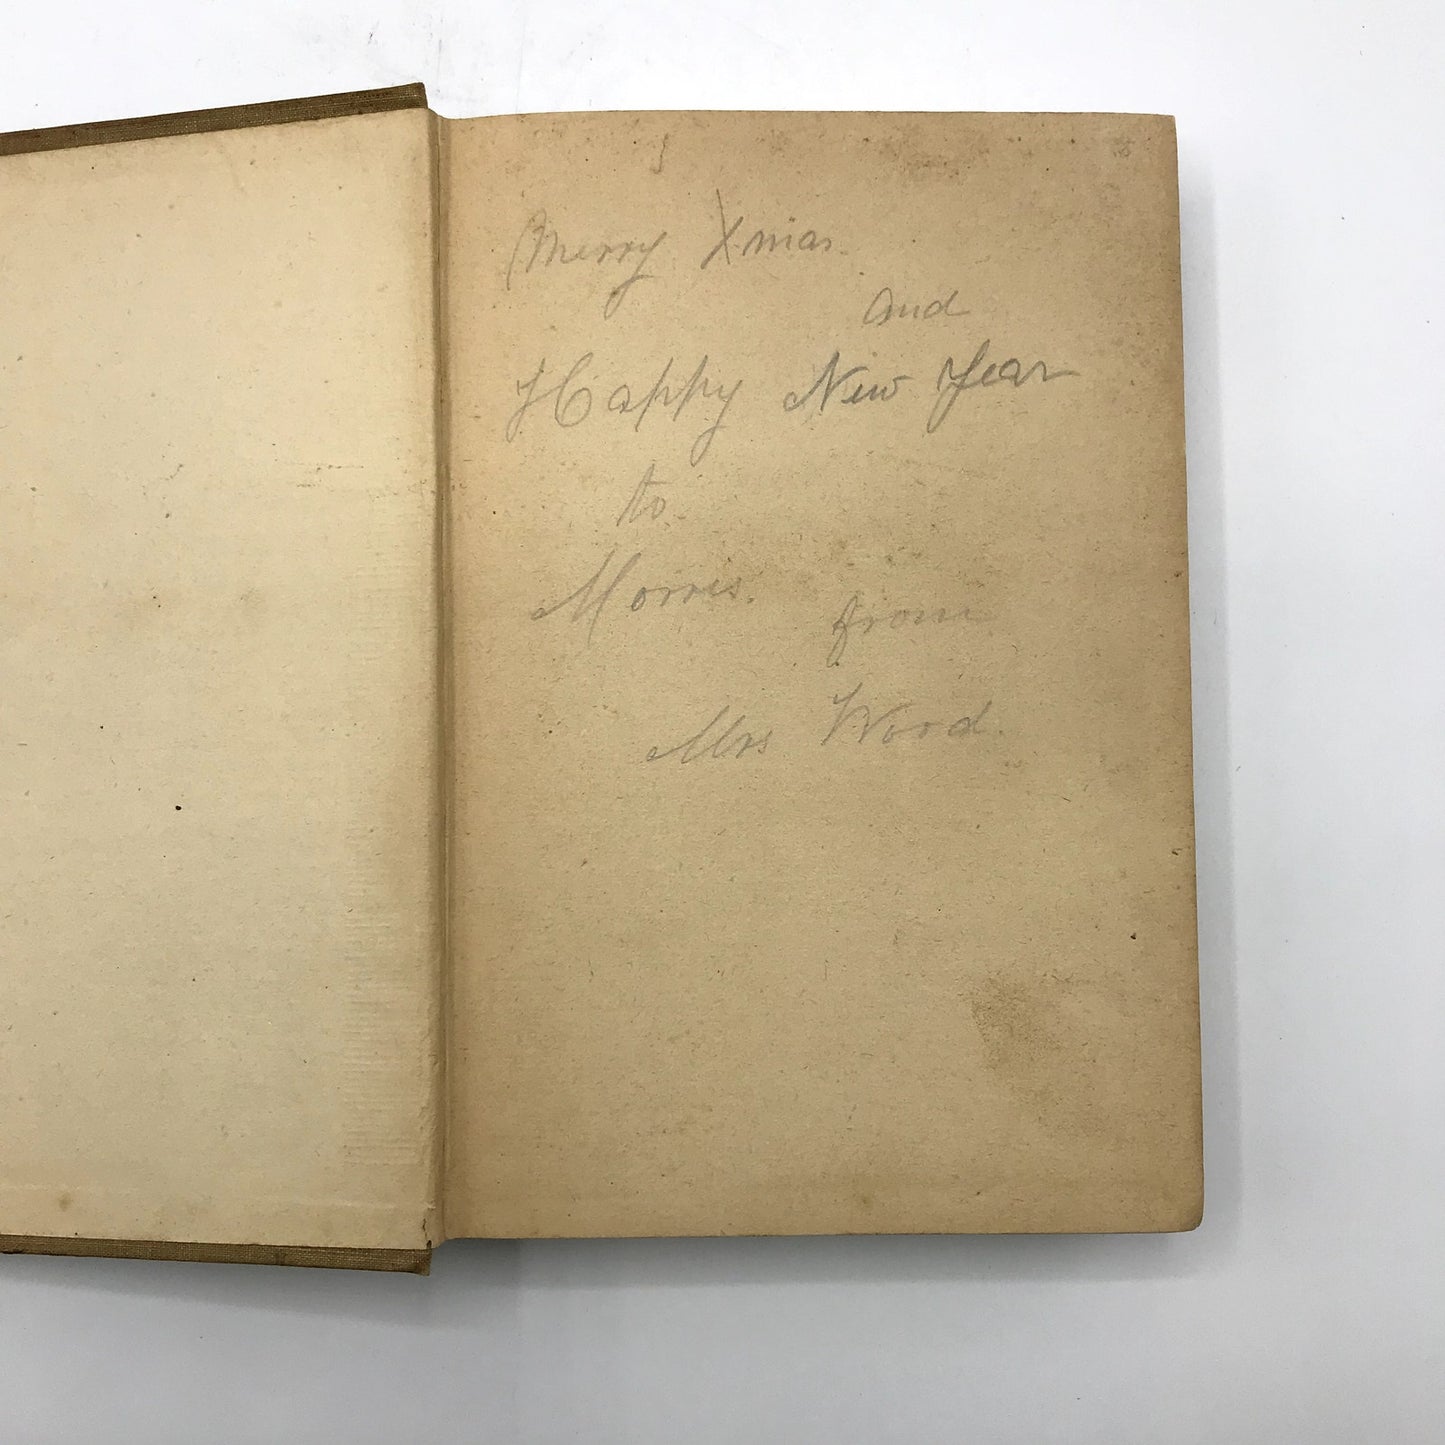 Merry Xmas.
and
Happy New Year
to
Morris.
from
Mrs Wood.